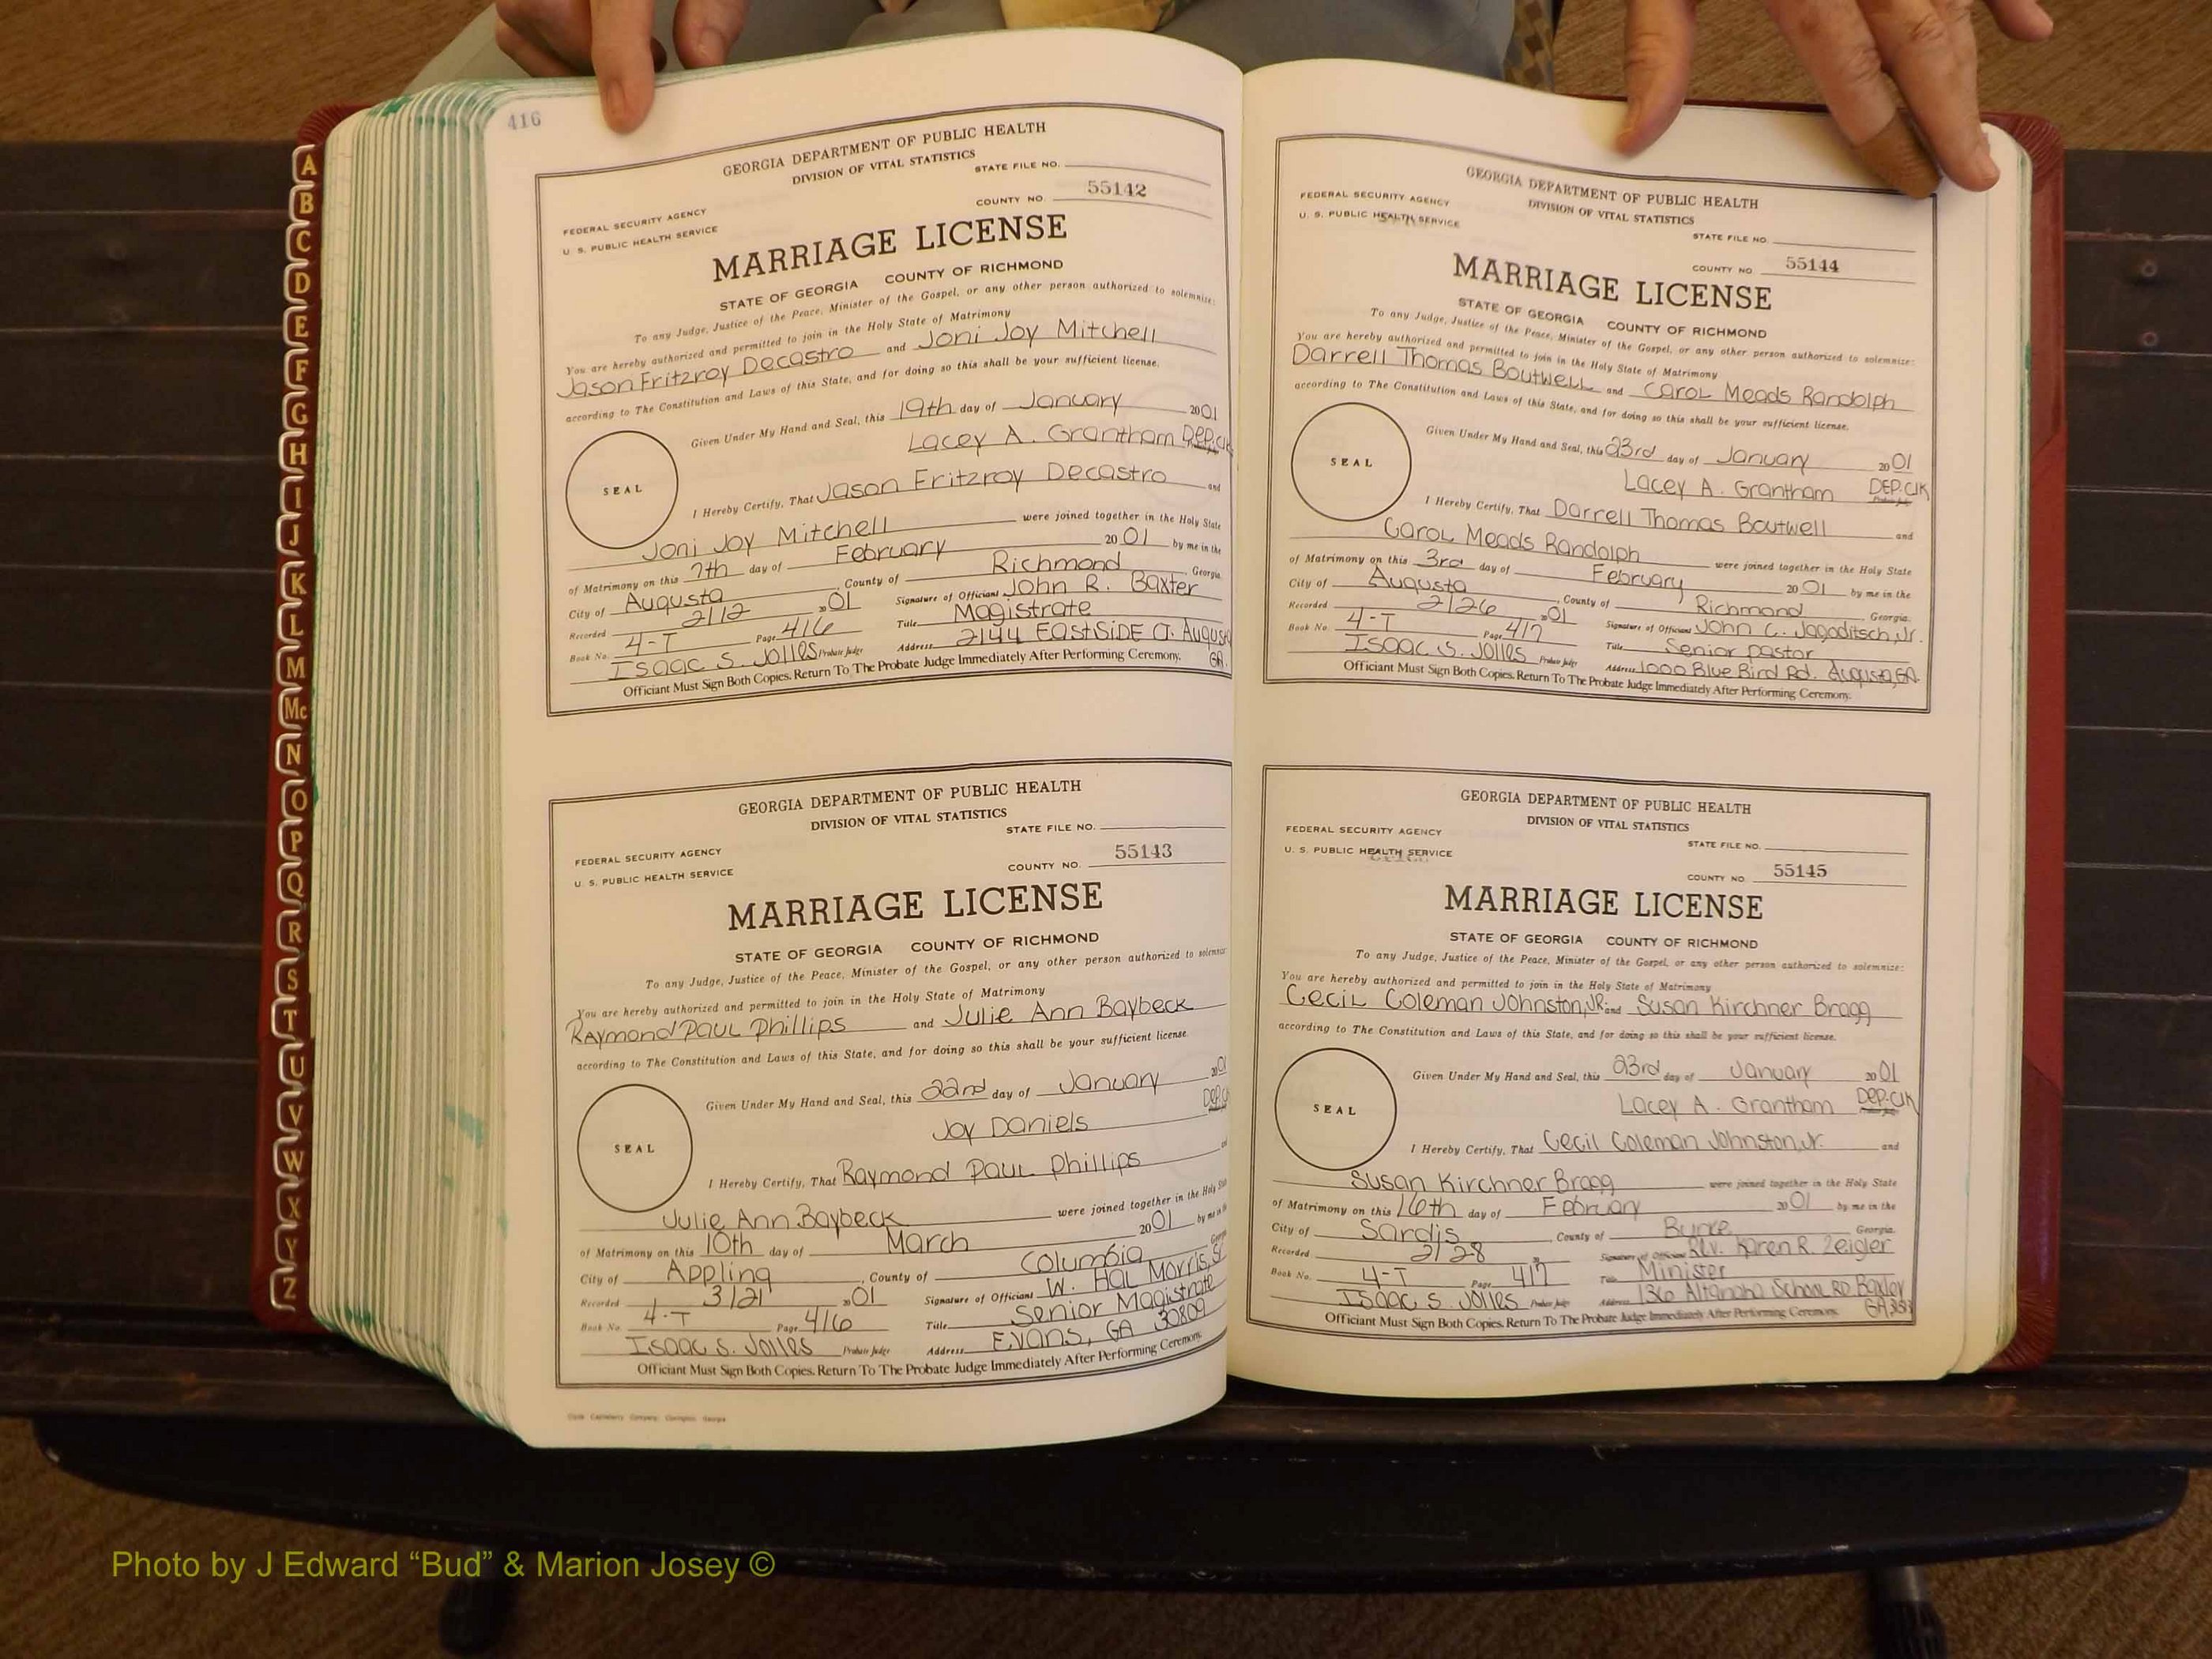 416
A
B
C
D
E
F
G
H
I
J
K
L
M
Mc
N
O
P
Q
R
S
T
U
V
W
X
Y
Z
GEORGIA DEPARTMENT OF PUBLIC HEALTH
DIVISION OF VITAL STATISTICS
STATE FILE NO.
COUNTY NO. 55142
FEDERAL SECURITY AGENCY
U. S. PUBLIC HEALTH SERVICE
MARRIAGE LICENSE
STATE OF GEORGIA COUNTY OF RICHMOND
To any Judge, Justice of the Peace, Minister of the Gospel, or any other person authorized to solemnize:
You are hereby authorized and permitted to join in the Holy State of Matrimony
Jason Fritzroy Decastro and Joni Joy Mitchell
according to The Constitution and Laws of this State, and for doing so this shall be your sufficient license.
Given Under My Hand and Seal, this 19th day of January 2001
Lacey A. Grantham Dep.Clk
SEAL
I Hereby Certify, That Jason Fritzroy Decastro and
Joni Joy Mitchell were joined together in the Holy State
of Matrimony on this 7th day of February 2001 by me in the
City of Augusta, County of Richmond, Georgia.
Recorded 2/12 01 Signature of Officiant John R. Baxter
Book No. 4-T Page 416 Title Magistrate
Isaac S. Jolles Probate Judge Address 2144 Eastside Ct. Augusta GA.
Officiant Must Sign Both Copies. Return To The Probate Judge Immediately After Performing Ceremony.
GEORGIA DEPARTMENT OF PUBLIC HEALTH
DIVISION OF VITAL STATISTICS
STATE FILE NO.
FEDERAL SECURITY AGENCY
U. S. PUBLIC HEALTH SERVICE
COUNTY NO. 55143
MARRIAGE LICENSE
STATE OF GEORGIA COUNTY OF RICHMOND
To any Judge, Justice of the Peace, Minister of the Gospel, or any other person authorized to
You are hereby authorized and permitted to join in the Holy State of Matrimony
Raymond Paul Phillips and Julie Ann Baybeck
according to The Constitution and Laws of this State, and for doing so this shall be your sufficient license.
Given Under My Hand and Seal, this 22nd day of January 2001
Joy Daniels Dep.
SEAL
I Hereby Certify, That Raymond Paul Phillips
Julie Ann Baybeck were joined together in the Holy
of Matrimony on this 10th day of March 2001 by me in
City of Appling, County of Columbia
Recorded 3/21 01 Signature of Officiant W. Hal Morris, Sr.
Book No. 4-T Page 416 Title Senior Magistrate
Isaac S. Jolles Probate Judge Address Evans, GA 30809
Officiant Must Sign Both Copies. Return To The Probate Judge Immediately After Performing Ceremony.
GEORGIA DEPARTMENT OF PUBLIC HEALTH
DIVISION OF VITAL STATISTICS
FEDERAL SECURITY AGENCY
U. S. PUBLIC HEALTH SERVICE
STATE FILE NO.
COUNTY NO. 55144
MARRIAGE LICENSE
STATE OF GEORGIA COUNTY OF RICHMOND
To any Judge, Justice of the Peace, Minister of the Gospel, or any other person authorized to solemnize:
You are hereby authorized and permitted to join in the Holy State of Matrimony
Darrell Thomas Boutwell and Carol Meads Randolph
according to The Constitution and Laws of this State, and for doing so this shall be your sufficient license.
Given Under My Hand and Seal, this 23rd day of January 2001
Lacey A. Grantham Dep.Clk
SEAL
I Hereby Certify, That Darrell Thomas Boutwell and
Carol Meads Randolph were joined together in the Holy State
of Matrimony on this 3rd day of February 2001 by me in the
City of Augusta, County of Richmond Georgia.
Recorded 2/26 01 Signature of Officiant John C. Jagoditsch, Jr.
Book No. 4-T Page 417 Title Senior Pastor
Isaac S. Jolles Probate Judge Address 1000 Blue Bird Rd. Augusta, GA.
Officiant Must Sign Both Copies. Return To The Probate Judge Immediately After Performing Ceremony.
GEORGIA DEPARTMENT OF PUBLIC HEALTH
DIVISION OF VITAL STATISTICS
FEDERAL SECURITY AGENCY
U. S. PUBLIC HEALTH SERVICE
STATE FILE NO.
COUNTY NO. 55145
MARRIAGE LICENSE
STATE OF GEORGIA COUNTY OF RICHMOND
To any Judge, Justice of the Peace, Minister of the Gospel, or any other person authorized to solemnize:
You are hereby authorized and permitted to join in the Holy State of Matrimony
Cecil Coleman Johnston, Jr. and Susan Kirchner Bragg
according to The Constitution and Laws of this State, and for doing so this shall be your sufficient license.
Given Under My Hand and Seal, this 23rd day of January 2001
Lacey A. Grantham Dep.Clk
SEAL
I Hereby Certify, That Cecil Coleman Johnston, Jr. and
Susan Kirchner Bragg were joined together in the Holy State
of Matrimony on this 16th day of February 2001 by me in the
City of Sardis, County of Burke Georgia.
Recorded 2/28 Signature of Officiant Rev. Karen R. Zeigler
Book No. 4-T Page 417 Title Minister
Isaac S. Jolles Probate Judge Address 136 Altamaha School Rd Baxley GA
Officiant Must Sign Both Copies. Return To The Probate Judge Immediately After Performing Ceremony.
Photo by J Edward “Bud” & Marion Josey ©